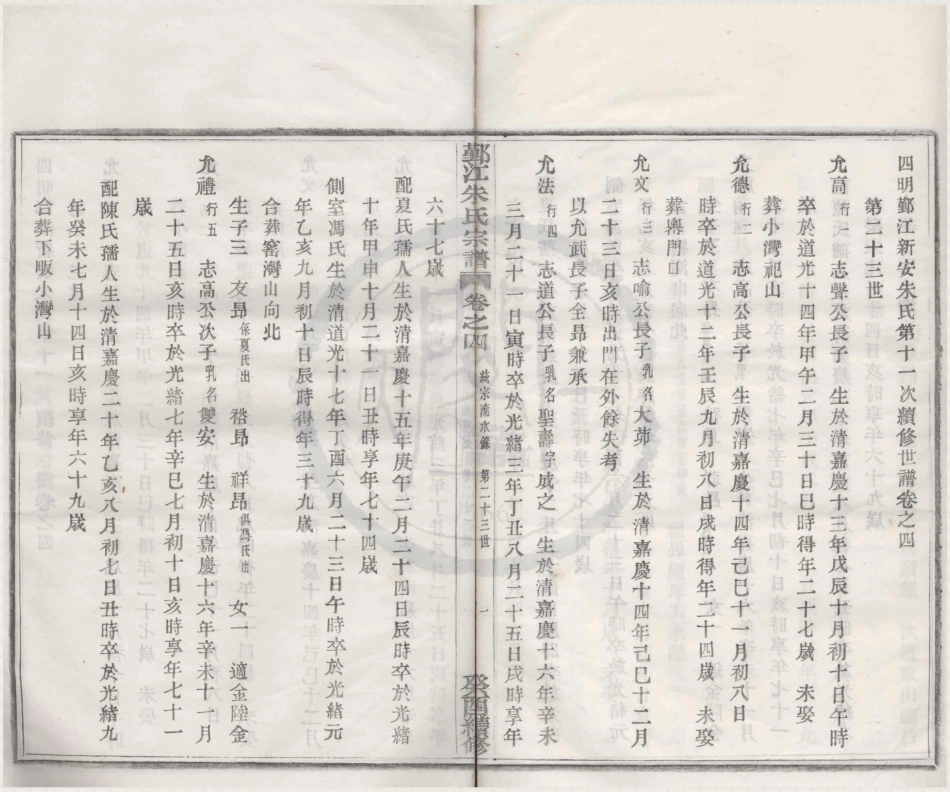 四明鄞江新安朱氏第十一次續修世譜卷之四
第三十三世
允高行一　志聲公長子　生於清嘉慶十三年戊辰十月初十日午時
卒於道光十四年甲午二月三十日巳時得年二十七歲　未娶
葬小灣祀山
允德行二　志高公長子　生於清嘉慶十四年己巳十一月初八日
時卒於道光十二年壬辰九月初八日戌時得年二十四歲　未娶
葬輿門口
允文行三　志喻公長子乳名大茆　生於清嘉慶十四年己巳十二月
二十三日亥時出門在外餘失考
以允武長子全昂兼承
允法行四　志道公長子乳名聖壽字成之　生於清嘉慶十六年辛未
三月二十一日寅時卒於光緒三年丁丑八月二十五日戌時享年
鄞江朱氏宗譜　卷之四　統宗流水錄　第三十三世　一　癸酉續修
六十七歲
配夏氏孺人生於清嘉慶十五年庚午二月二十四日辰時卒於光緒
十年甲申十月二十一日丑時享年七十四歲
側室馮氏生於清道光十七年丁酉六月二十三日午時卒於光緒元
年乙亥九月初十日辰時得年三十九歲
合葬窰灣山向北
生子三　友昂係夏氏出　楷昂　祥昂俱馮氏出　女一　適金陸金
允禮行五　志高公次子乳名雙安　生於清嘉慶十六年辛未十一月
二十五日亥時卒於光緒七年辛巳七月初十日亥時享年七十一
歲
配陳氏孺人生於清嘉慶二十年乙亥八月初七日丑時卒於光緒九
年癸未七月十四日亥時享年六十九歲
合葬下畈小灣山